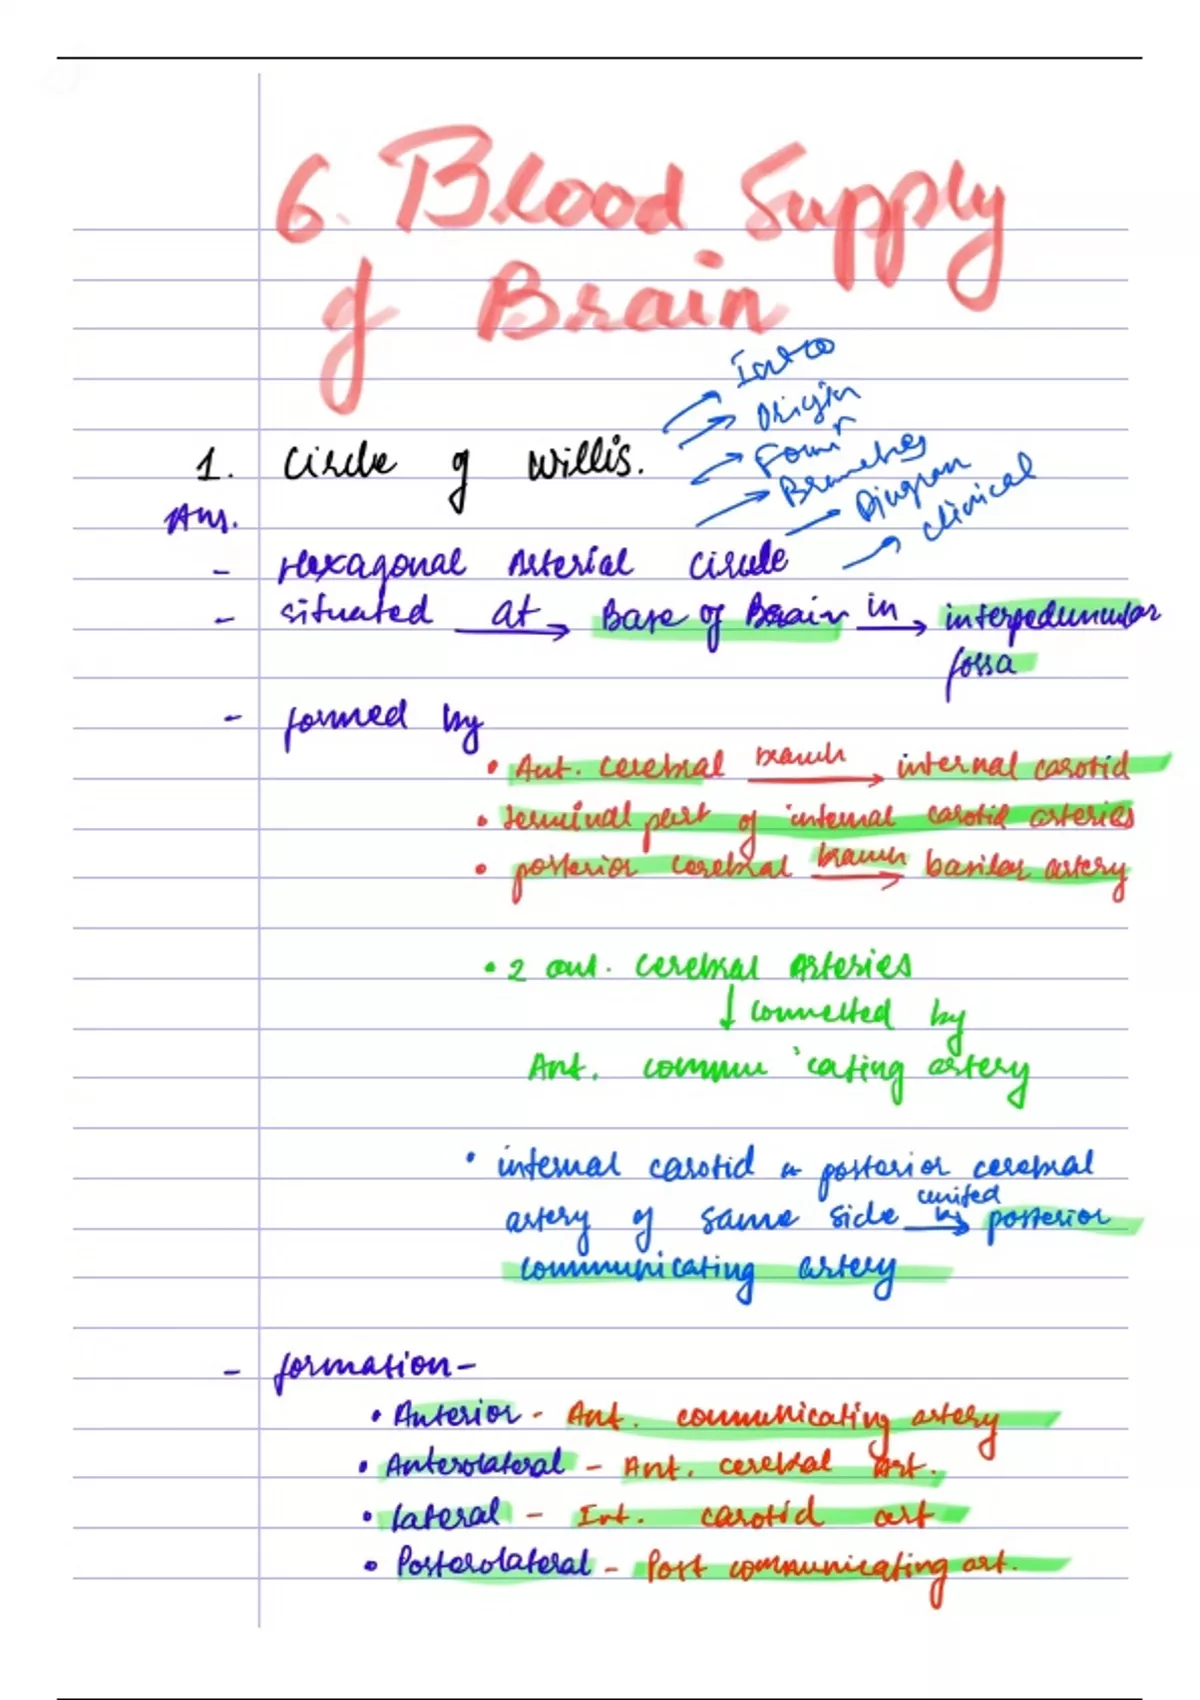 6. Blood Supply
of Brain
Intro
Origin
Formn
Branches
Diagram
clinical
1. Circle of Willis.
Ans.
- Hexagonal Arterial Circle
- situated at → Base of Brain in → interpeduncular
fossa
- formed by
• Ant. cerebral branch → internal carotid
• terminal part of internal carotid arteries
• posterior cerebral branch → basilar artery
• 2 ant. cerebral Arteries
↓ connected by
Ant. communicating artery
• internal carotid & posterior cerebral
artery of same side united by → posterior
communicating artery
- formation -
• Anterior - Ant. communicating artery
• Anterolateral - Ant. cerebral Art.
• lateral - Int. carotid art
• Posterolateral - Post communicating art.